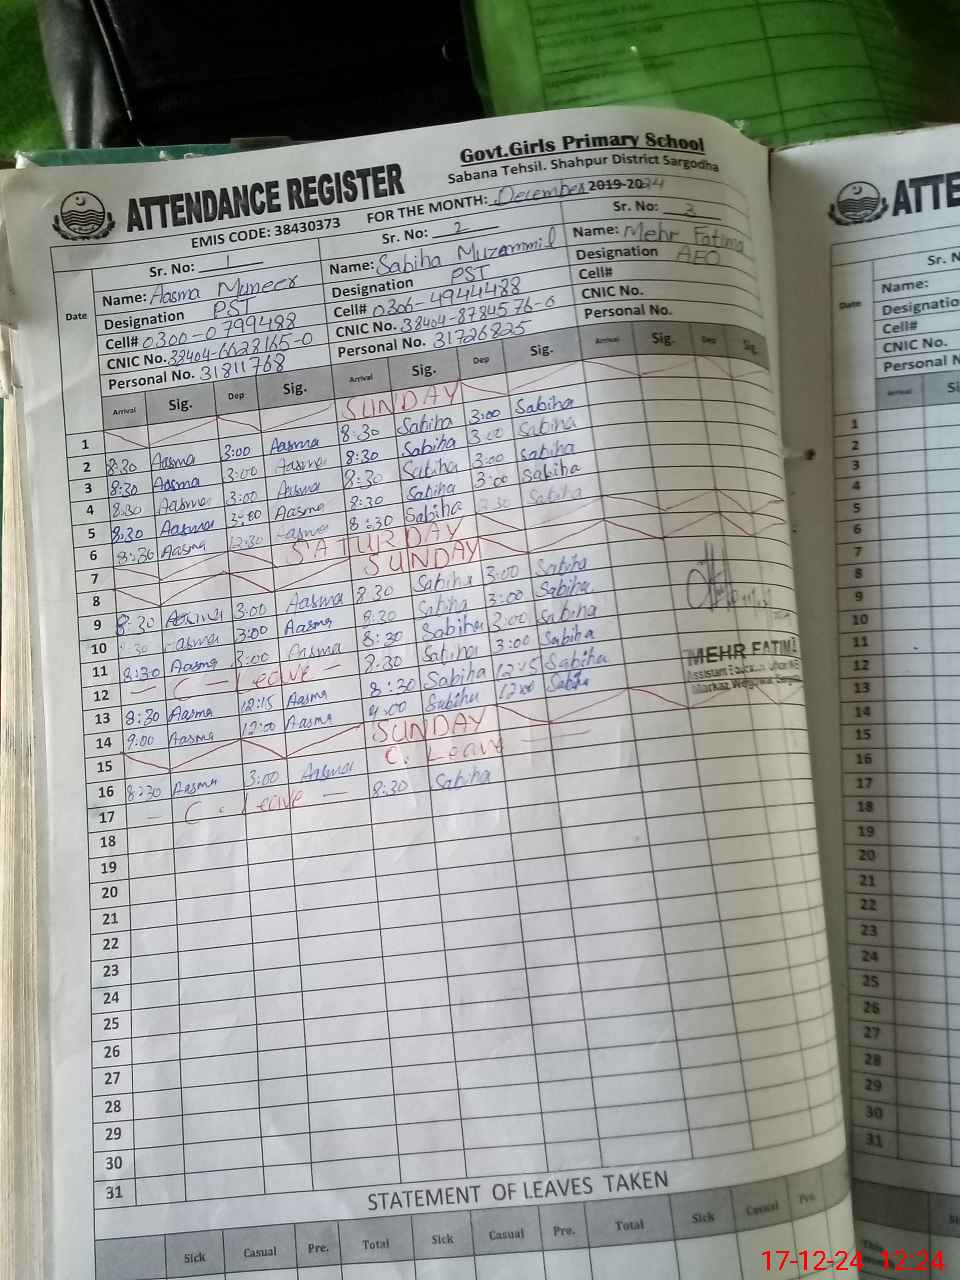 Govt.Girls Primary School
Sabana Tehsil. Shahpur District Sargodha
ATTENDANCE REGISTER
EMIS CODE: 38430373 FOR THE MONTH: December 2019-2024
Sr. No: 1 Sr. No: 2 Sr. No: 3
Date Name: Aasma Muneer Name: Sabiha Muzammil Name: Mehr Fatima
Designation PST Designation PST Designation AEO
Cell# 0300-0799488 Cell# 0306-4944488 Cell#
CNIC No. 38404-6628165-0 CNIC No. 38404-8784576-6 CNIC No.
Personal No. 31811768 Personal No. 31726825 Personal No.
Arrival Sig. Dep Sig. Arrival Sig. Dep Sig. Arrival Sig. Dep Sig.
1 SUNDAY
2 8:30 Aasma 3:00 Aasma 8:30 Sabiha 3:00 Sabiha
3 8:30 Aasma 3:00 Aasma 8:30 Sabiha 3:00 Sabiha
4 8:30 Aasma 3:00 Aasma 8:30 Sabiha 3:00 Sabiha
5 8:30 Aasma 3:00 Aasma 8:30 Sabiha 3:00 Sabiha
6 8:30 Aasma 12:30 Aasma 8:30 Sabiha Sabiha
7 SATURDAY
8 SUNDAY
9 8:30 Aasma 3:00 Aasma 8:30 Sabiha 3:00 Sabiha
10 8:30 Aasma 3:00 Aasma 8:30 Sabiha 3:00 Sabiha
11 8:30 Aasma 3:00 Aasma 8:30 Sabiha 3:00 Sabiha
12 — C — Leave — 8:30 Sabiha 3:00 Sabiha
13 8:30 Aasma 12:15 Aasma 8:30 Sabiha 12:15 Sabiha
14 9:00 Aasma 12:00 Aasma 9:00 Sabiha 12:00 Sabiha
15 SUNDAY
16 8:30 Aasma 3:00 Aasma C. Leave —
17 — C. Leave — 8:30 Sabiha
MEHR FATIMA
Assistant Education
Markaz
18
19
20
21
22
23
24
25
26
27
28
29
30
31
STATEMENT OF LEAVES TAKEN
Sick Casual Pre. Total Sick Casual Pre. Total Sick Casual Pre.
ATTE
Sr. N
Date Name:
Designatio
Cell#
CNIC No.
Personal N
Arrival
1
2
3
4
5
6
7
8
9
10
11
12
13
14
15
16
17
18
19
20
21
22
23
24
25
26
27
28
29
30
31
This
17-12-24 12:24